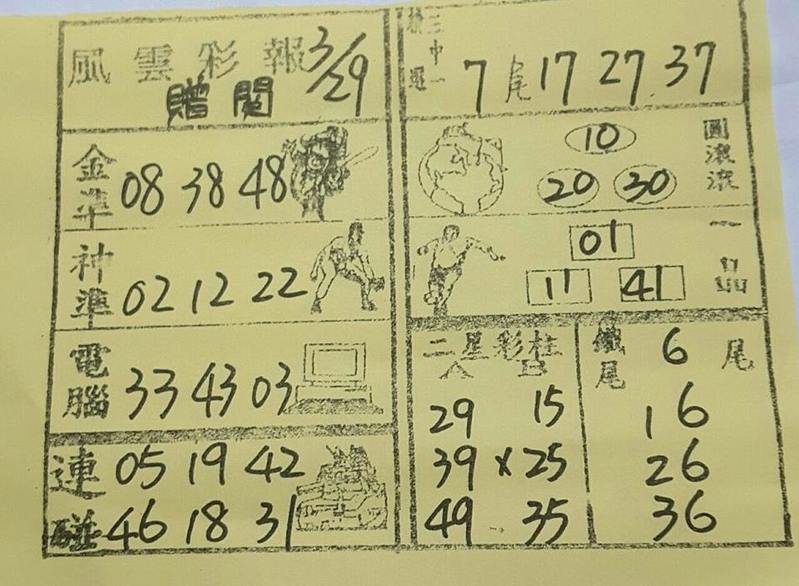 風雲彩報 3/29
贈閱
金準 08 38 48
神準 02 12 22
電腦 33 43 03
連碰 05 19 42
46 18 31
三中一
7尾 17 27. 37
圓滾滾
10
20 30
一品
01
11 41
二星彩柱
A B
29 15
39 × 25
49 35
鐵尾
6尾
16
26
36